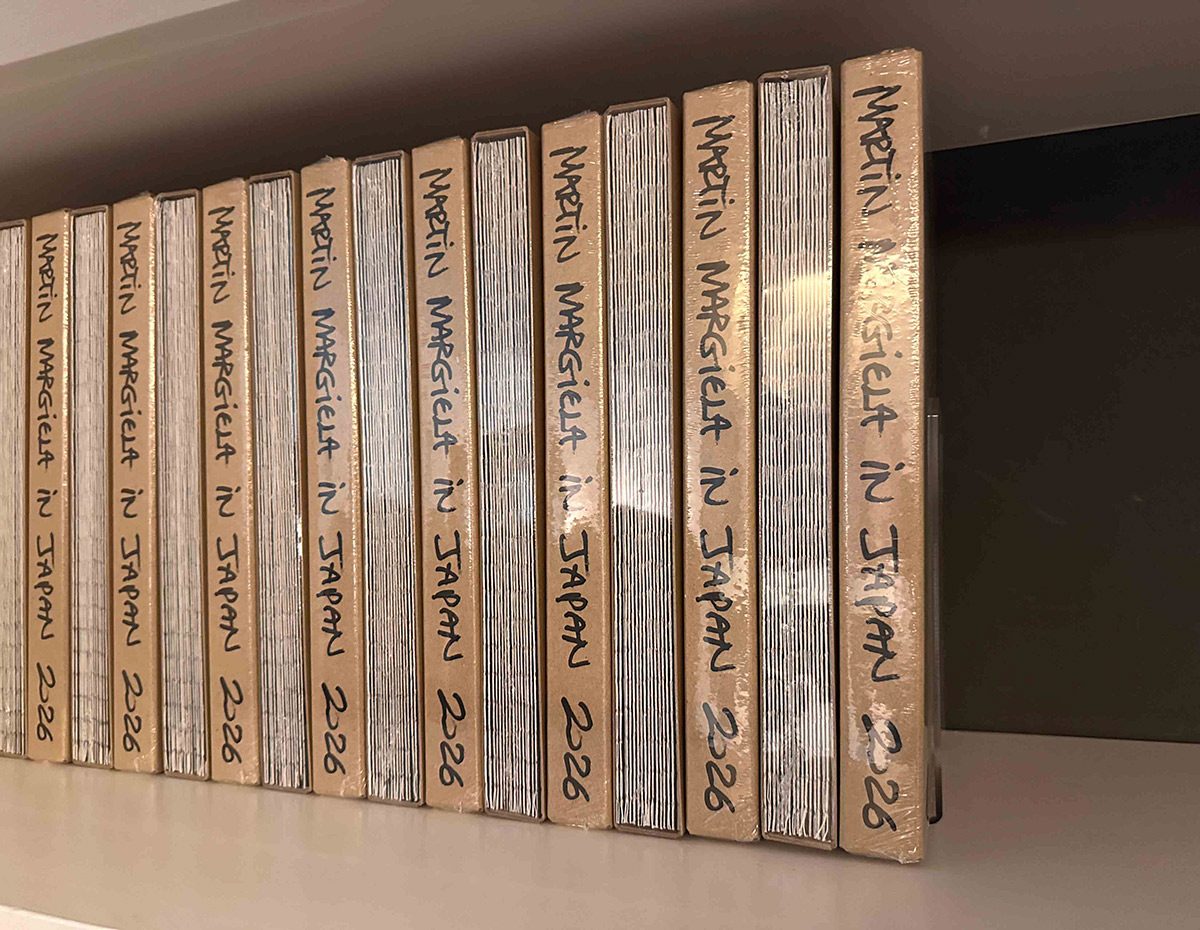 MARTiN MARGiELA iN JAPAN 2026
MARTiN MARGiELA iN JAPAN 2026
MARTiN MARGiELA iN JAPAN 2026
MARTiN MARGiELA iN JAPAN 2026
MARTiN MARGiELA iN JAPAN 2026
MARTiN MARGiELA iN JAPAN 2026
MARTiN MARGiELA iN JAPAN 2026
MARTiN MARGiELA iN JAPAN 2026